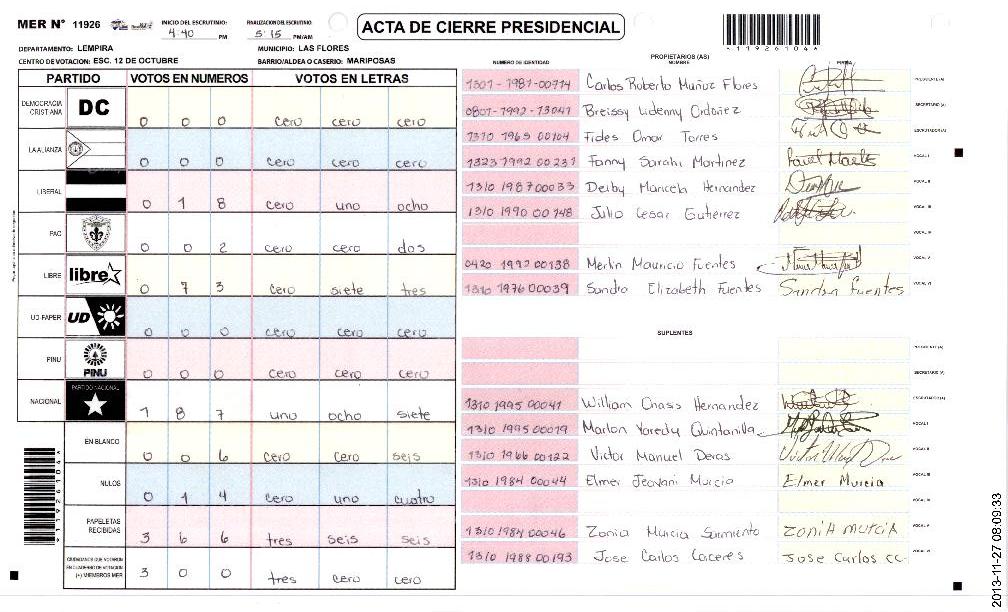 MER N° 11926 INICIO DEL ESCRUTINIO: 4:40 PM FINALIZACION DEL ESCRUTINIO: 5:15 PM/AM
ACTA DE CIERRE PRESIDENCIAL
*11926104*
DEPARTAMENTO: LEMPIRA MUNICIPIO: LAS FLORES
CENTRO DE VOTACION: ESC. 12 DE OCTUBRE BARRIO/ALDEA O CASERIO: MARIPOSAS
PARTIDO VOTOS EN NUMEROS VOTOS EN LETRAS
DEMOCRACIA CRISTIANA DC 0 0 0 cero cero cero
LA ALIANZA 0 0 0 cero cero cero
LIBERAL 0 1 8 cero uno ocho
PAC 0 0 2 cero cero dos
LIBRE libre 0 7 3 cero siete tres
UD-FAPER UD 0 0 0 cero cero cero
PINU PINU 0 0 0 cero cero cero
NACIONAL PARTIDO NACIONAL 1 8 7 uno ocho siete
EN BLANCO 0 0 6 cero cero seis
NULOS 0 1 4 cero uno cuatro
PAPELETAS RECIBIDAS 3 6 6 tres seis seis
CIUDADANOS QUE VOTARON EN CUADERNO DE VOTACION (+) MIEMBROS MER 3 0 0 tres cero cero
*11926104*
PROPIETARIOS (AS)
NUMERO DE IDENTIDAD NOMBRE FIRMA
1301-1981-00714 Carlos Roberto Muñoz Flores PRESIDENTE (A)
0801-1992-13047 Breissy Lidenny Ordoñez SECRETARIO (A)
1310 1965 00104 Fides Omar Torres ESCRUTADOR (A)
1323 1992 00231 Fanny Sarahi Martinez VOCAL I
1310 1987 00033 Deiby Maricela Hernandez VOCAL II
1310 1990 00748 Julio Cesar Gutierrez VOCAL III
VOCAL IV
0420 1992 00138 Merlin Mauricio Fuentes VOCAL V
1310 1976 00039 Sandra Elizabeth Fuentes Sandra Fuentes VOCAL VI
SUPLENTES
PRESIDENTE (A)
SECRETARIO (A)
1310 1995 00041 William Onasis Hernandez ESCRUTADOR (A)
1310 1995 00019 Marlon Yoredy Quintanilla VOCAL I
1310 1966 00122 Victor Manuel Deras VOCAL II
1310 1984 00044 Elmer Jeovani Murcia Elmer Murcia VOCAL III
VOCAL IV
1310 1984 00046 Zonia Murcia Sarmiento ZONIA MURCIA VOCAL V
1310 1988 00193 Jose Carlos Caceres Jose Carlos CC. VOCAL VI
2013-11-27 08:09:33